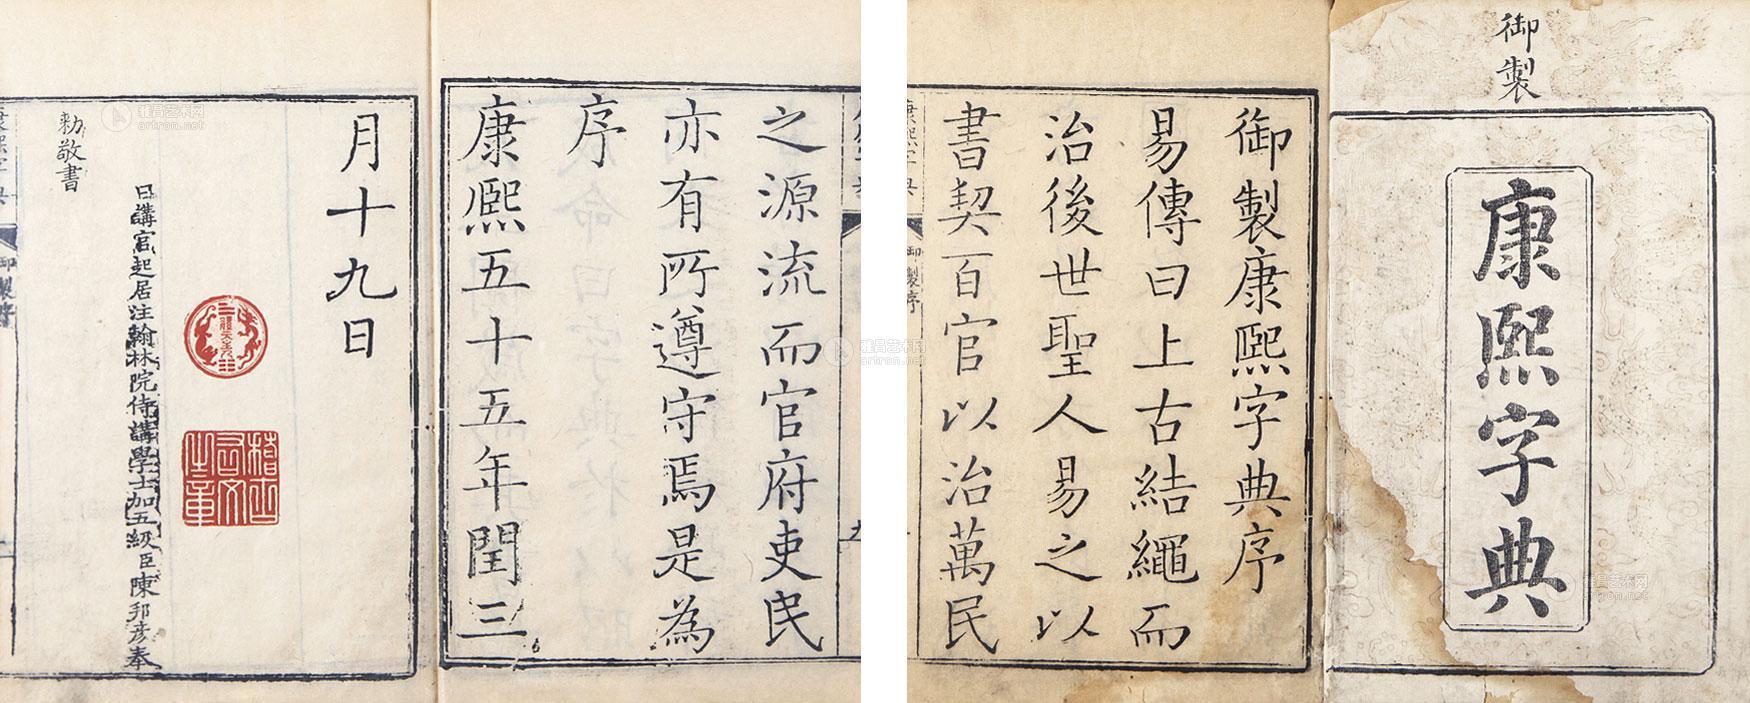 御製
康熙字典
御製康熙字典序
易傳曰上古結繩而
治後世聖人易之以
書契百官以治萬民
康熙字典
御製序
之源流而官府吏民
亦有所遵守焉是為
序
康熙五十五年閏三
月十九日
日講官起居注翰林院侍講學士加五級臣陳邦彥奉
勑敬書
御製序
雅昌艺术网
artron.net